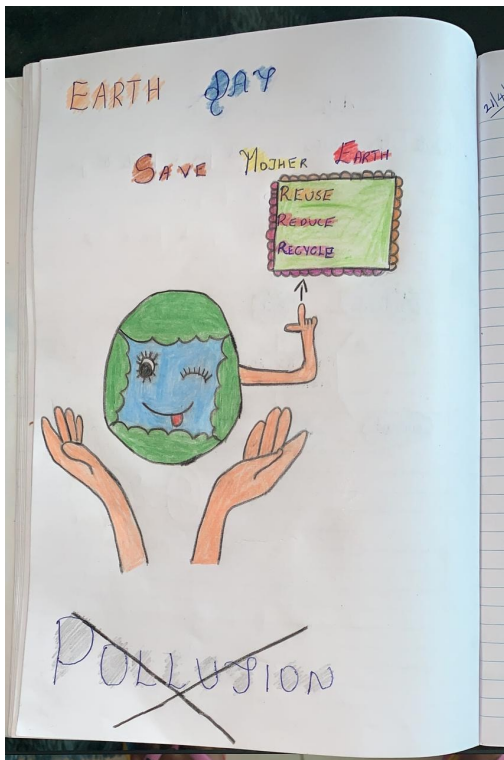 EARTH DAY
SAVE MOTHER EARTH
REUSE
REDUCE
RECYCLE
POLLUTION